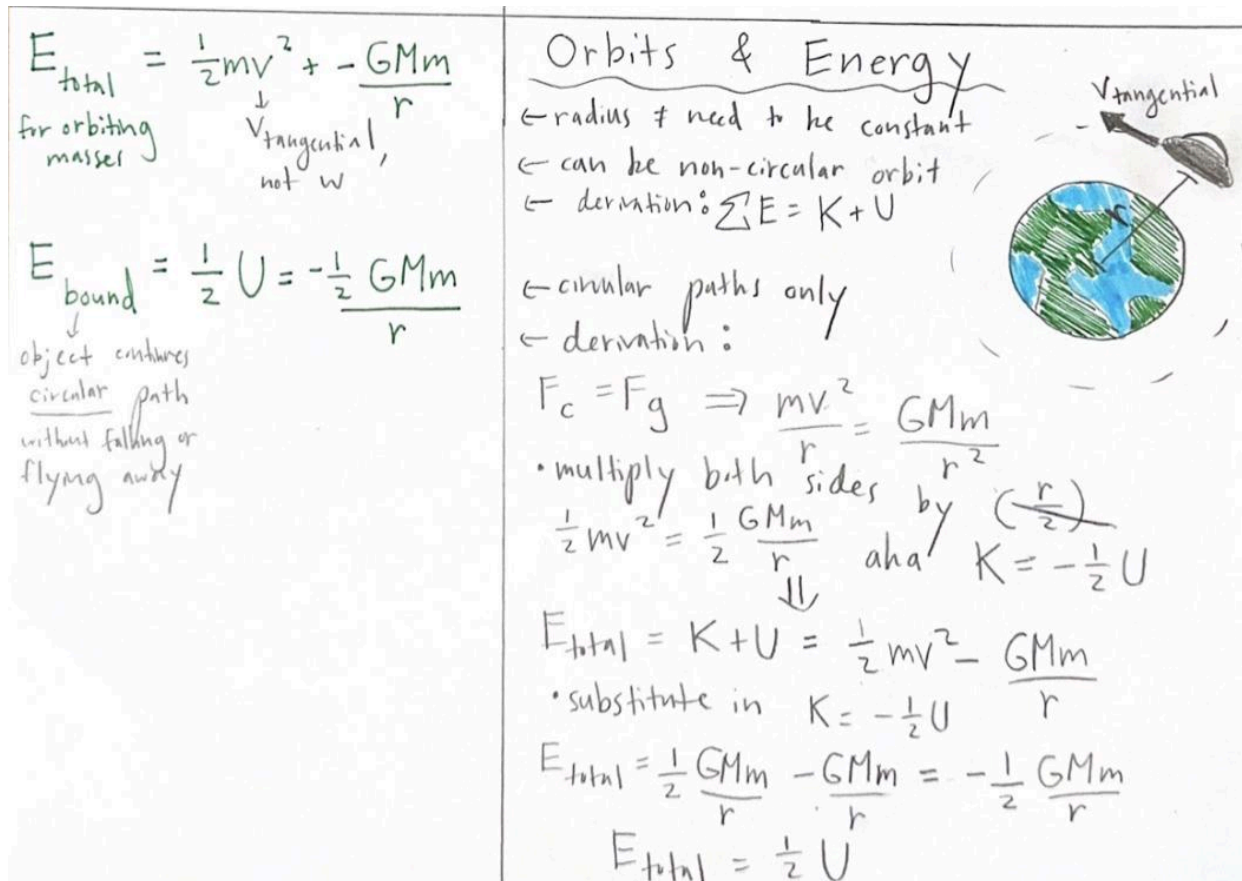 E total = ½mv² + - GMm/r
for orbiting
masses
↓
Vtangential,
not w
E bound = ½ U = -½ GMm/r
↓
object continues
circular path
without falling or
flying away
Orbits & Energy
← radius ≠ need to be constant
← can be non-circular orbit
← derivation: ΣE = K + U
← circular paths only
← derivation:
Fc = Fg ⇒ mv²/r = GMm/r²
• multiply both sides by (r/2)
½mv² = ½ GMm/r aha K = -½ U
⇓
Etotal = K + U = ½mv² - GMm/r
• substitute in K = -½ U
Etotal = ½ GMm/r - GMm/r = -½ GMm/r
Etotal = ½ U
Vtangential
r